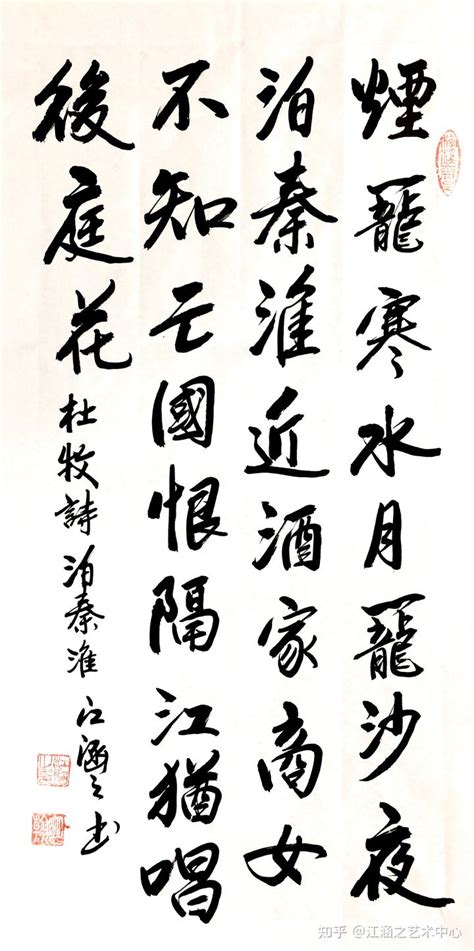 煙籠寒水月籠沙夜
泊秦淮近酒家商女
不知亡國恨隔江猶唱
後庭花
杜牧詩泊秦淮 江涵之書
知乎 @江涵之艺术中心